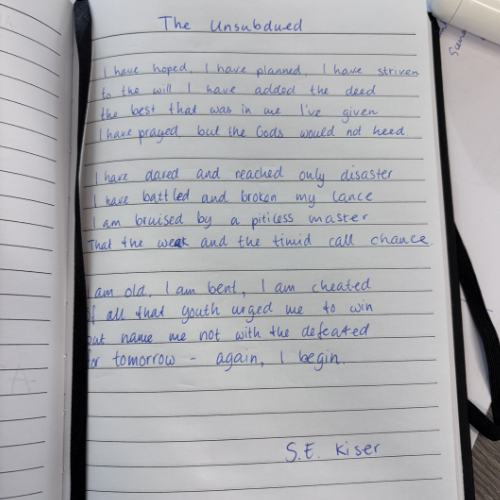 The Unsubdued
I have hoped, I have planned, I have striven
to the will I have added the deed
the best that was in me I've given
I have prayed but the Gods would not heed.
I have dared and reached only disaster
I have battled and broken my lance
I am bruised by a pitiless master
That the weak and the timid call chance.
I am old, I am bent, I am cheated
of all that youth urged me to win
but name me not with the defeated
for tomorrow - again, I begin.
S.E. Kiser